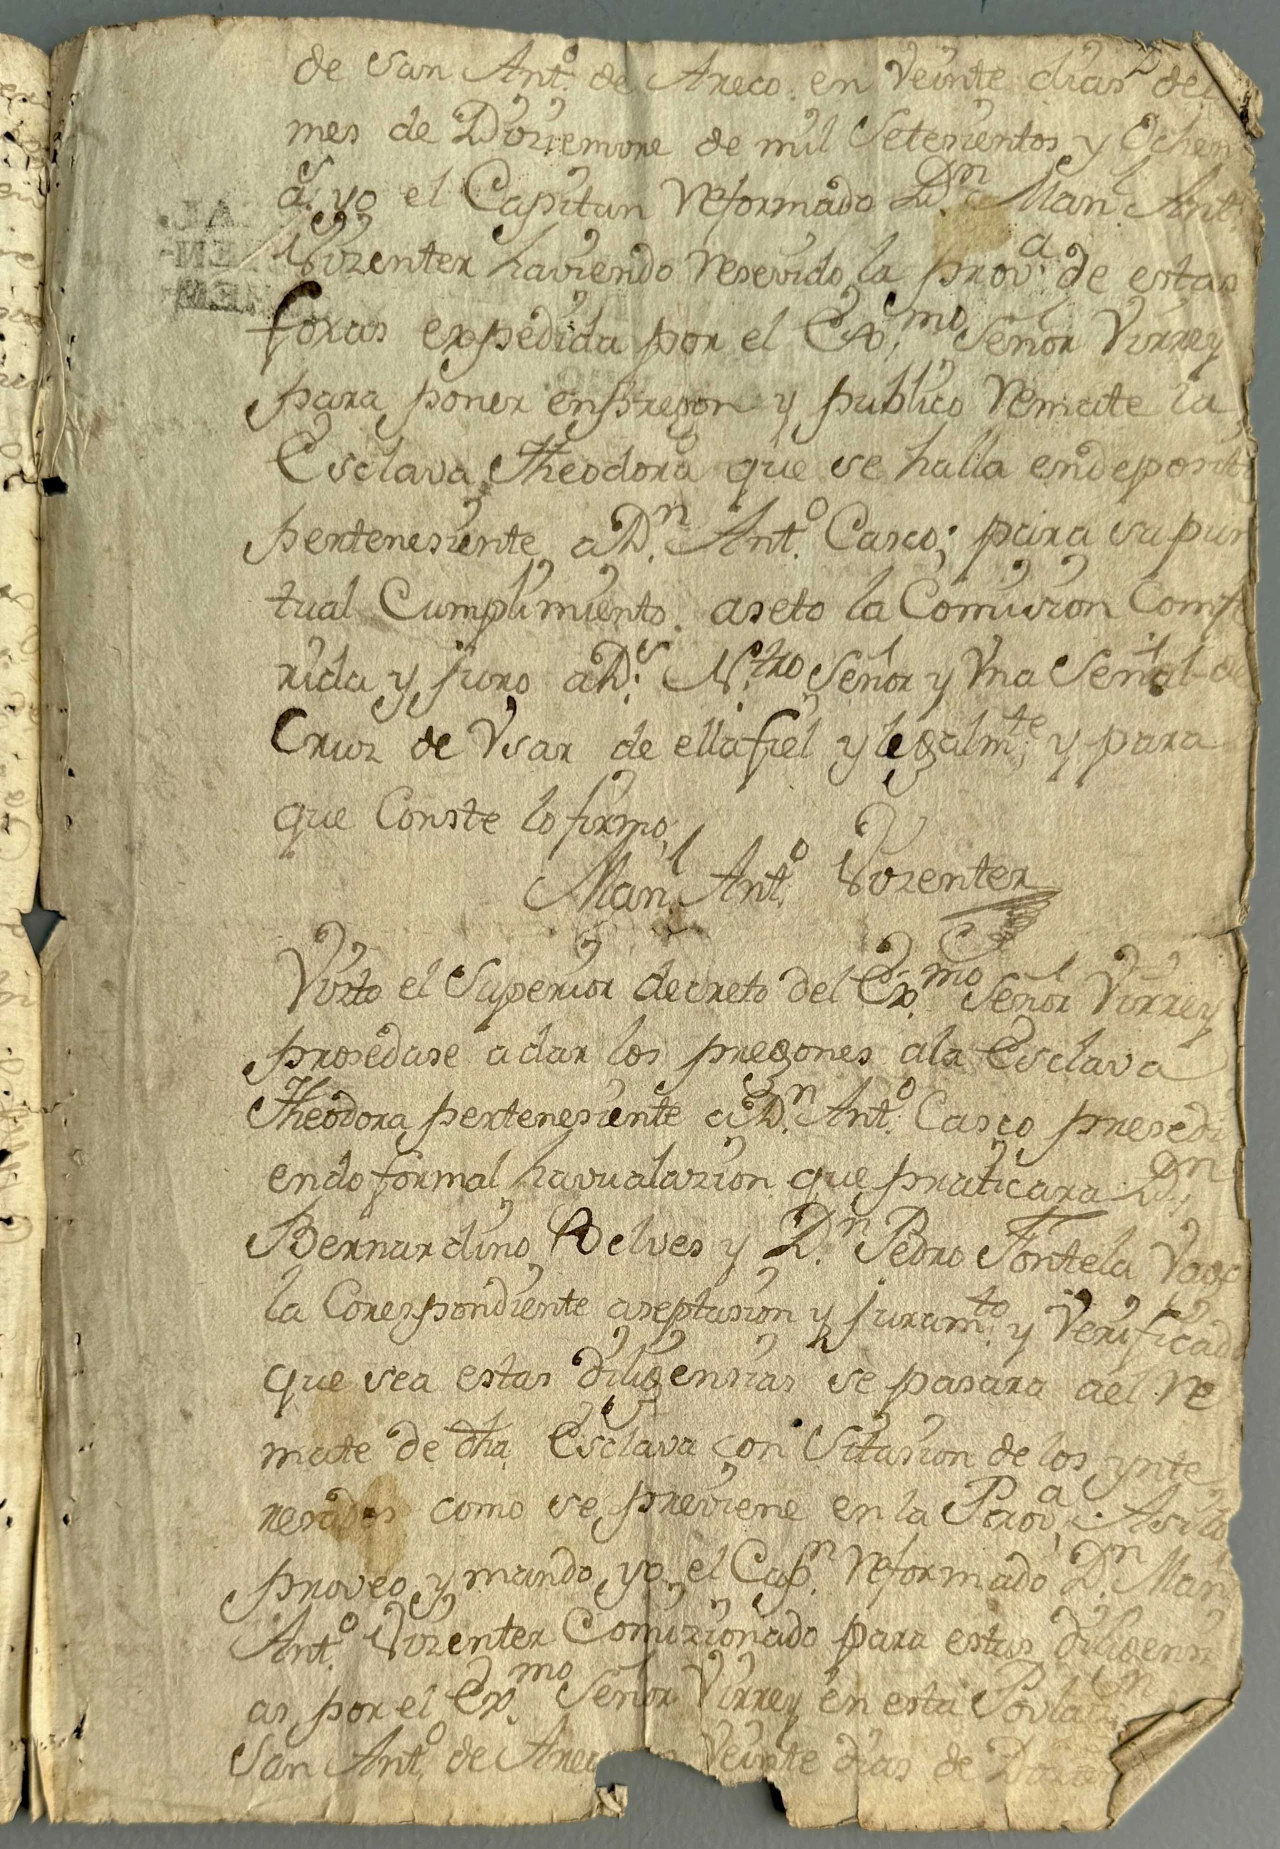 de San Antº. de Areco en Veinte dias del
mes de Diziembre de mil Setesientos y Ochen
ta. yo el Capitan Reformado Dn. Manl. Antº
Vizenter haviendo resevido la Prova. de estas
foxas expedida por el Exmo. Señor Virrey
para poner enpregon y publico Remate la
Esclava Theodora que se halla endeposito
pertenesiente a Dn. Antº. Casco; para su pun
tual Cumplimiento. aseto la Comision Comfe
rida y juro a Ds. Ntro Señor y Vna Señal de
Cruz de Vsar de ella fiel y legalmte. y para
que Conste lo firmo,
Manl. Antº. Vizenter
Visto el Superior decreto del Exmo. Señor Virrey
prosedase a dar los pregones ala Esclava
Theodora pertenesiente a Dn. Antº. Casco presedi
endo formal havualazion que praticara Dn.
Bernardino Belves y Dn. Pedro Fontela Vago
la Corespondiente aseptasion y juramto. y Verificado
que sea estas diligensias se pasara ael Re
mate de dha Esclava con Sitasion de los ynte
resados como se previene en la Prova. Asi lo
proveo y mando yo el Capn. Reformado Dn. Man
Antº. Vizenter Comizionado para estas diligensi
as por el Exmo. Señor Virrey en esta
San Antº. de Areco Veinte dias de